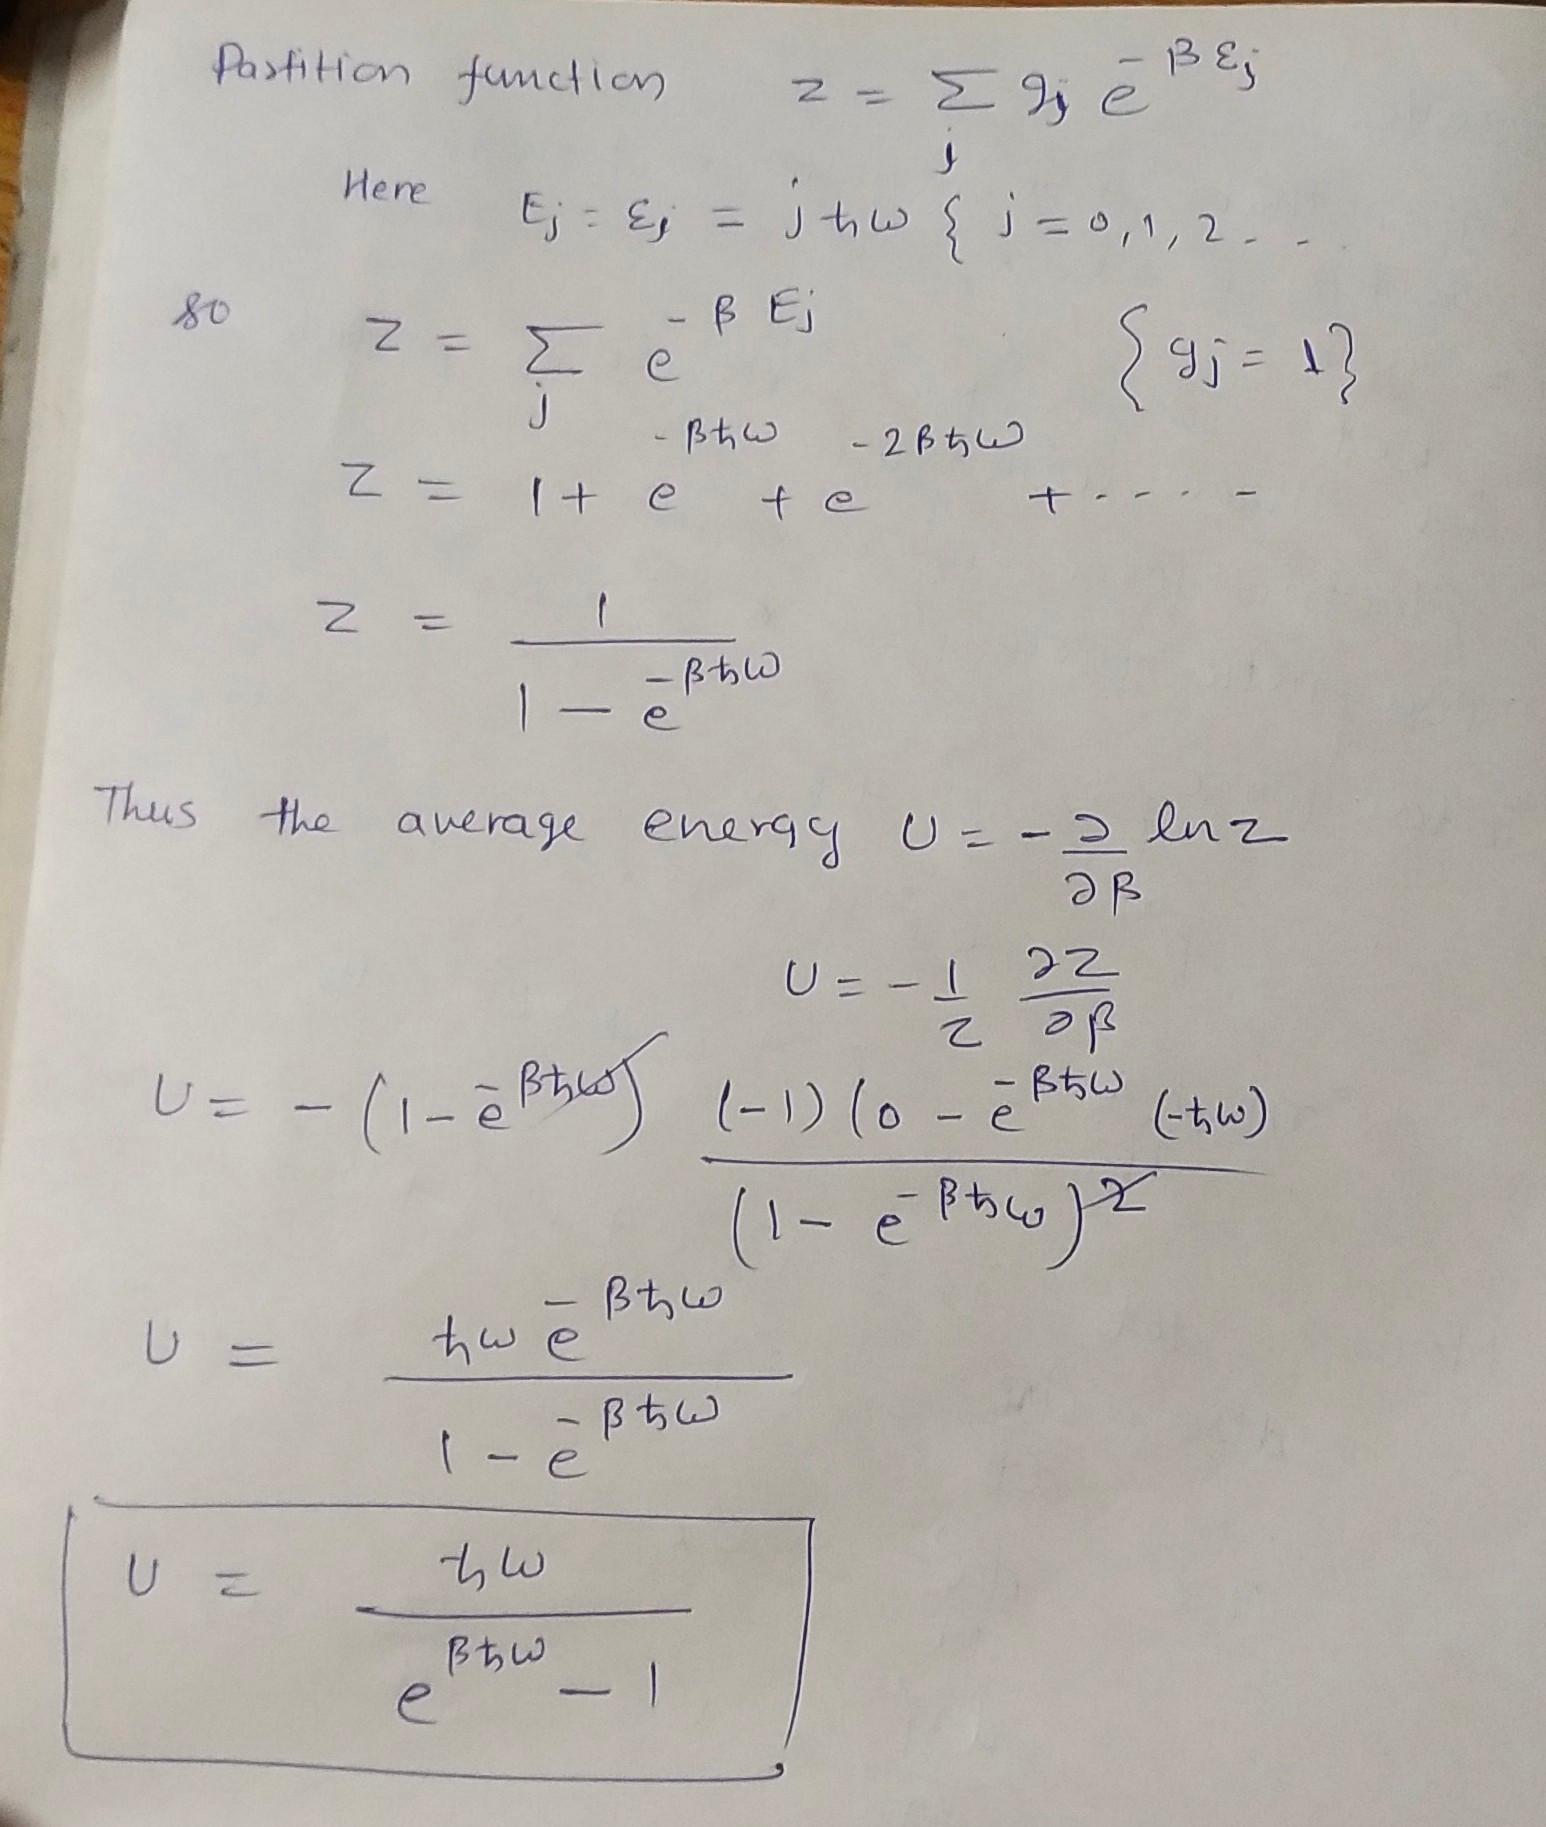 Partition function z = Σ_j g_j e^{-βε_j}
Here E_j = ε_j = jħω { j = 0, 1, 2 - -
so z = Σ_j e^{-βE_j} {g_j = 1}
z = 1 + e^{-βħω} + e^{-2βħω} + - - - -
z = 1 / (1 - e^{-βħω})
Thus the average energy U = - ∂/∂β ln z
U = - 1/z ∂z/∂β
U = - (1 - e^{-βħω}) (-1)(0 - e^{-βħω}(-ħω) / (1 - e^{-βħω})^2
U = ħω e^{-βħω} / 1 - e^{-βħω}
U = ħω / e^{βħω} - 1